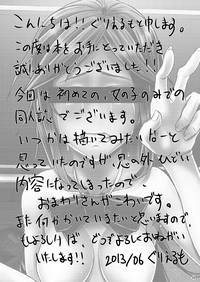 こんにちは!!ぐりえるもと申します。
この度は本をお手にとっていただき
誠にありがとうございました!!
今回は初めての、女の子のみでの
同人誌でございます。
いつかは描いてみたいなーと
思っていたのですが、思いの外ひどい
内容になってしまったので、
おまわりさんがこわいです。
また何かかいていきたいと思いますので、
もしよろしければ、どうぞよろしくおねがい
いたします!! 2013/06 ぐりえるも